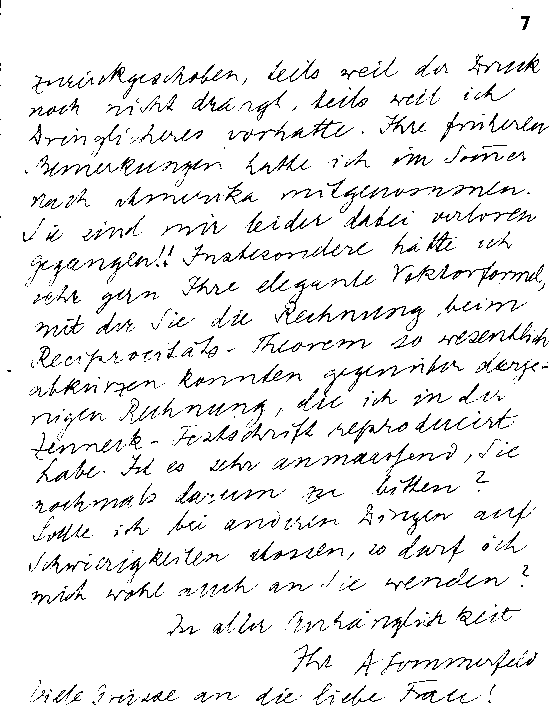 7
zurückgeschoben, teils weil der Druck
noch nicht drängt, teils weil ich
Dringlicheres vorhatte. Ihre früheren
Bemerkungen hatte ich im Som̄er
nach Amerika mitgenommen.
Sie sind mir leider dabei verloren
gegangen!! Insbesondere hätte ich
sehr gern Ihre elegante Vektorformel,
mit der Sie die Rechnung beim
Reciprocitäts-Theorem so wesentlich
abkürzen konnten gegenüber derje-
nigen Rechnung, die ich in der
Zenneck-Festschrift reproduciert
habe. Ist es sehr anmaassend, Sie
nochmals darum zu bitten?
Sollte ich bei anderen Dingen auf
Schwierigkeiten stossen, so darf ich
mich wohl auch an Sie wenden?
In aller Anhänglichkeit
Ihr A Sommerfeld
Viele Grüsse an die liebe Frau!